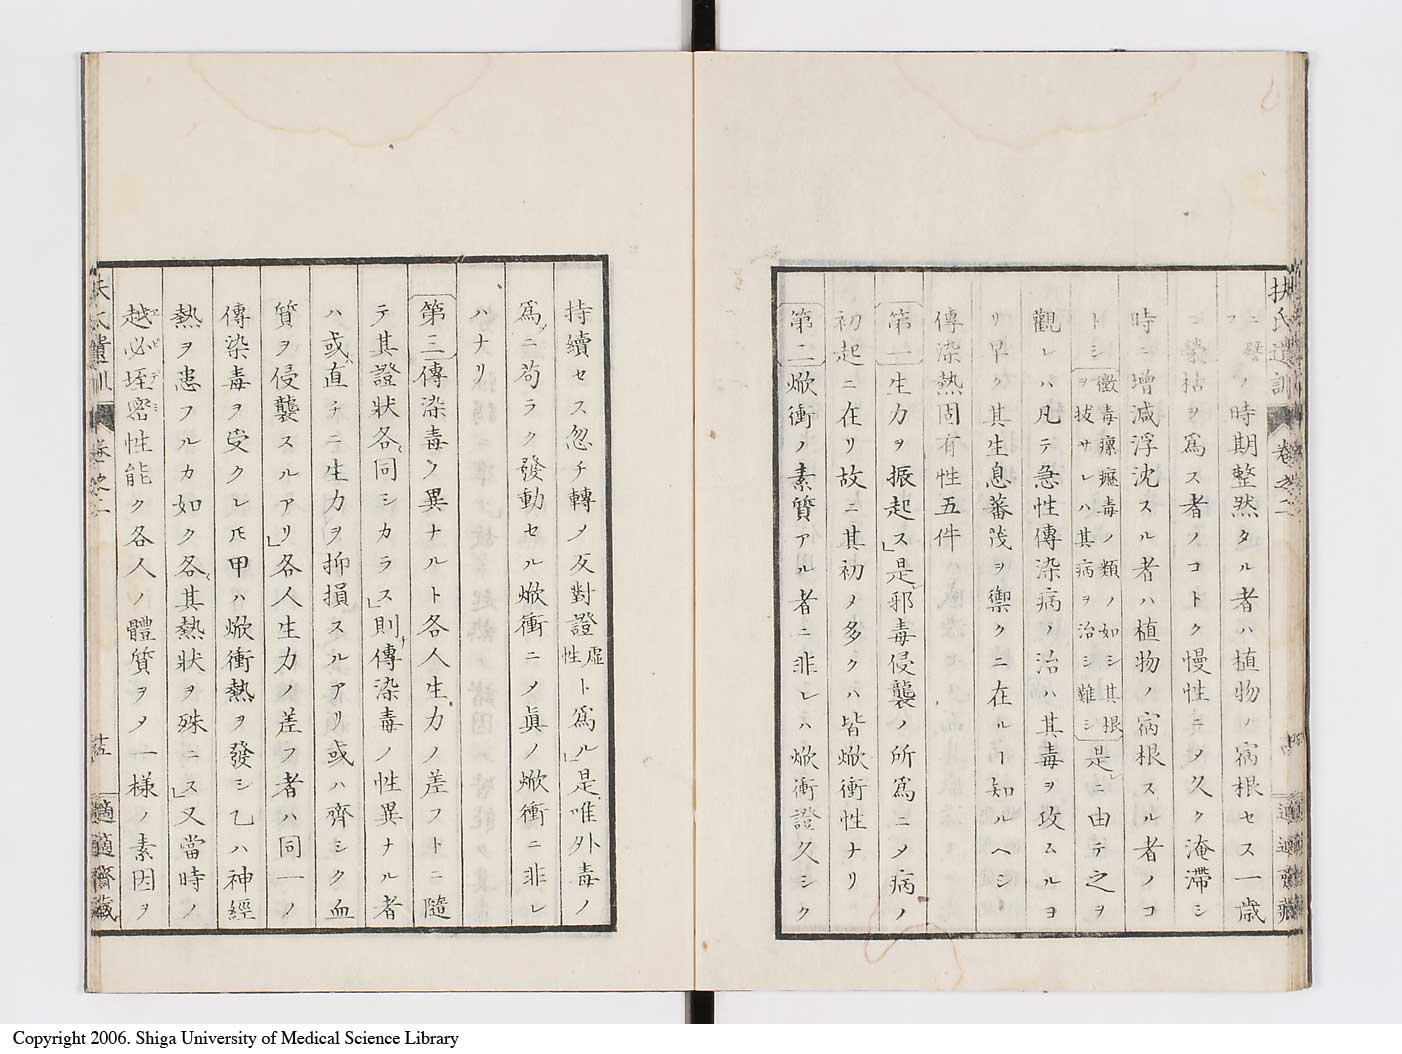 扶氏遺訓 卷之二
ニ譬フノ時期整然タル者ハ植物ノ宿根セス一歳
ニ榮枯ヲ爲ス者ノコトク慢性ニメ久ク淹滯シ
時ニ增減浮沈スル者ハ植物ノ宿根スル者ノコ
トシ黴毒瘰癧毒ノ類ノ如シ其根ヲ拔サレハ其病ヲ治シ難シ是ニ由テ之ヲ
觀レハ凡テ急性傳染病ノ治ハ其毒ヲ攻ムルヨ
リ早ク其生息蕃茂ヲ禦クニ在ルヿ知ルヘシ
傳染熱固有性五件
第一生力ヲ振起ス是邪毒侵襲ノ所爲ニメ病ノ
初起ニ在リ故ニ其初メ多クハ皆焮衝性ナリ
第二焮衝ノ素質アル者ニ非レハ焮衝證久シク
適適齋藏
持續セス忽チ轉メ反對證虛性ト爲ル是唯外毒ノ
爲ニ苟ラク發動セル焮衝ニメ眞ノ焮衝ニ非レ
ハナリ
第三傳染毒ノ異ナルト各人生力ノ差フトニ隨
テ其證狀各同シカラス則傳染毒ノ性異ナル者
ハ或直チニ生力ヲ抑損スルアリ或ハ齊シク血
質ヲ侵襲スルアリ各人生力ノ差フ者ハ同一ノ
傳染毒ヲ受クレ𪜈甲ハ焮衝熱ヲ發シ乙ハ神經
熱ヲ患フルカ如ク各其熱狀ヲ殊ニス又當時ノ
越必垤密性能ク各人ノ體質ヲメ一樣ノ素因ヲ
エピデミ
扶氏遺訓 卷之二
適適齋藏
Copyright 2006. Shiga University of Medical Science Library